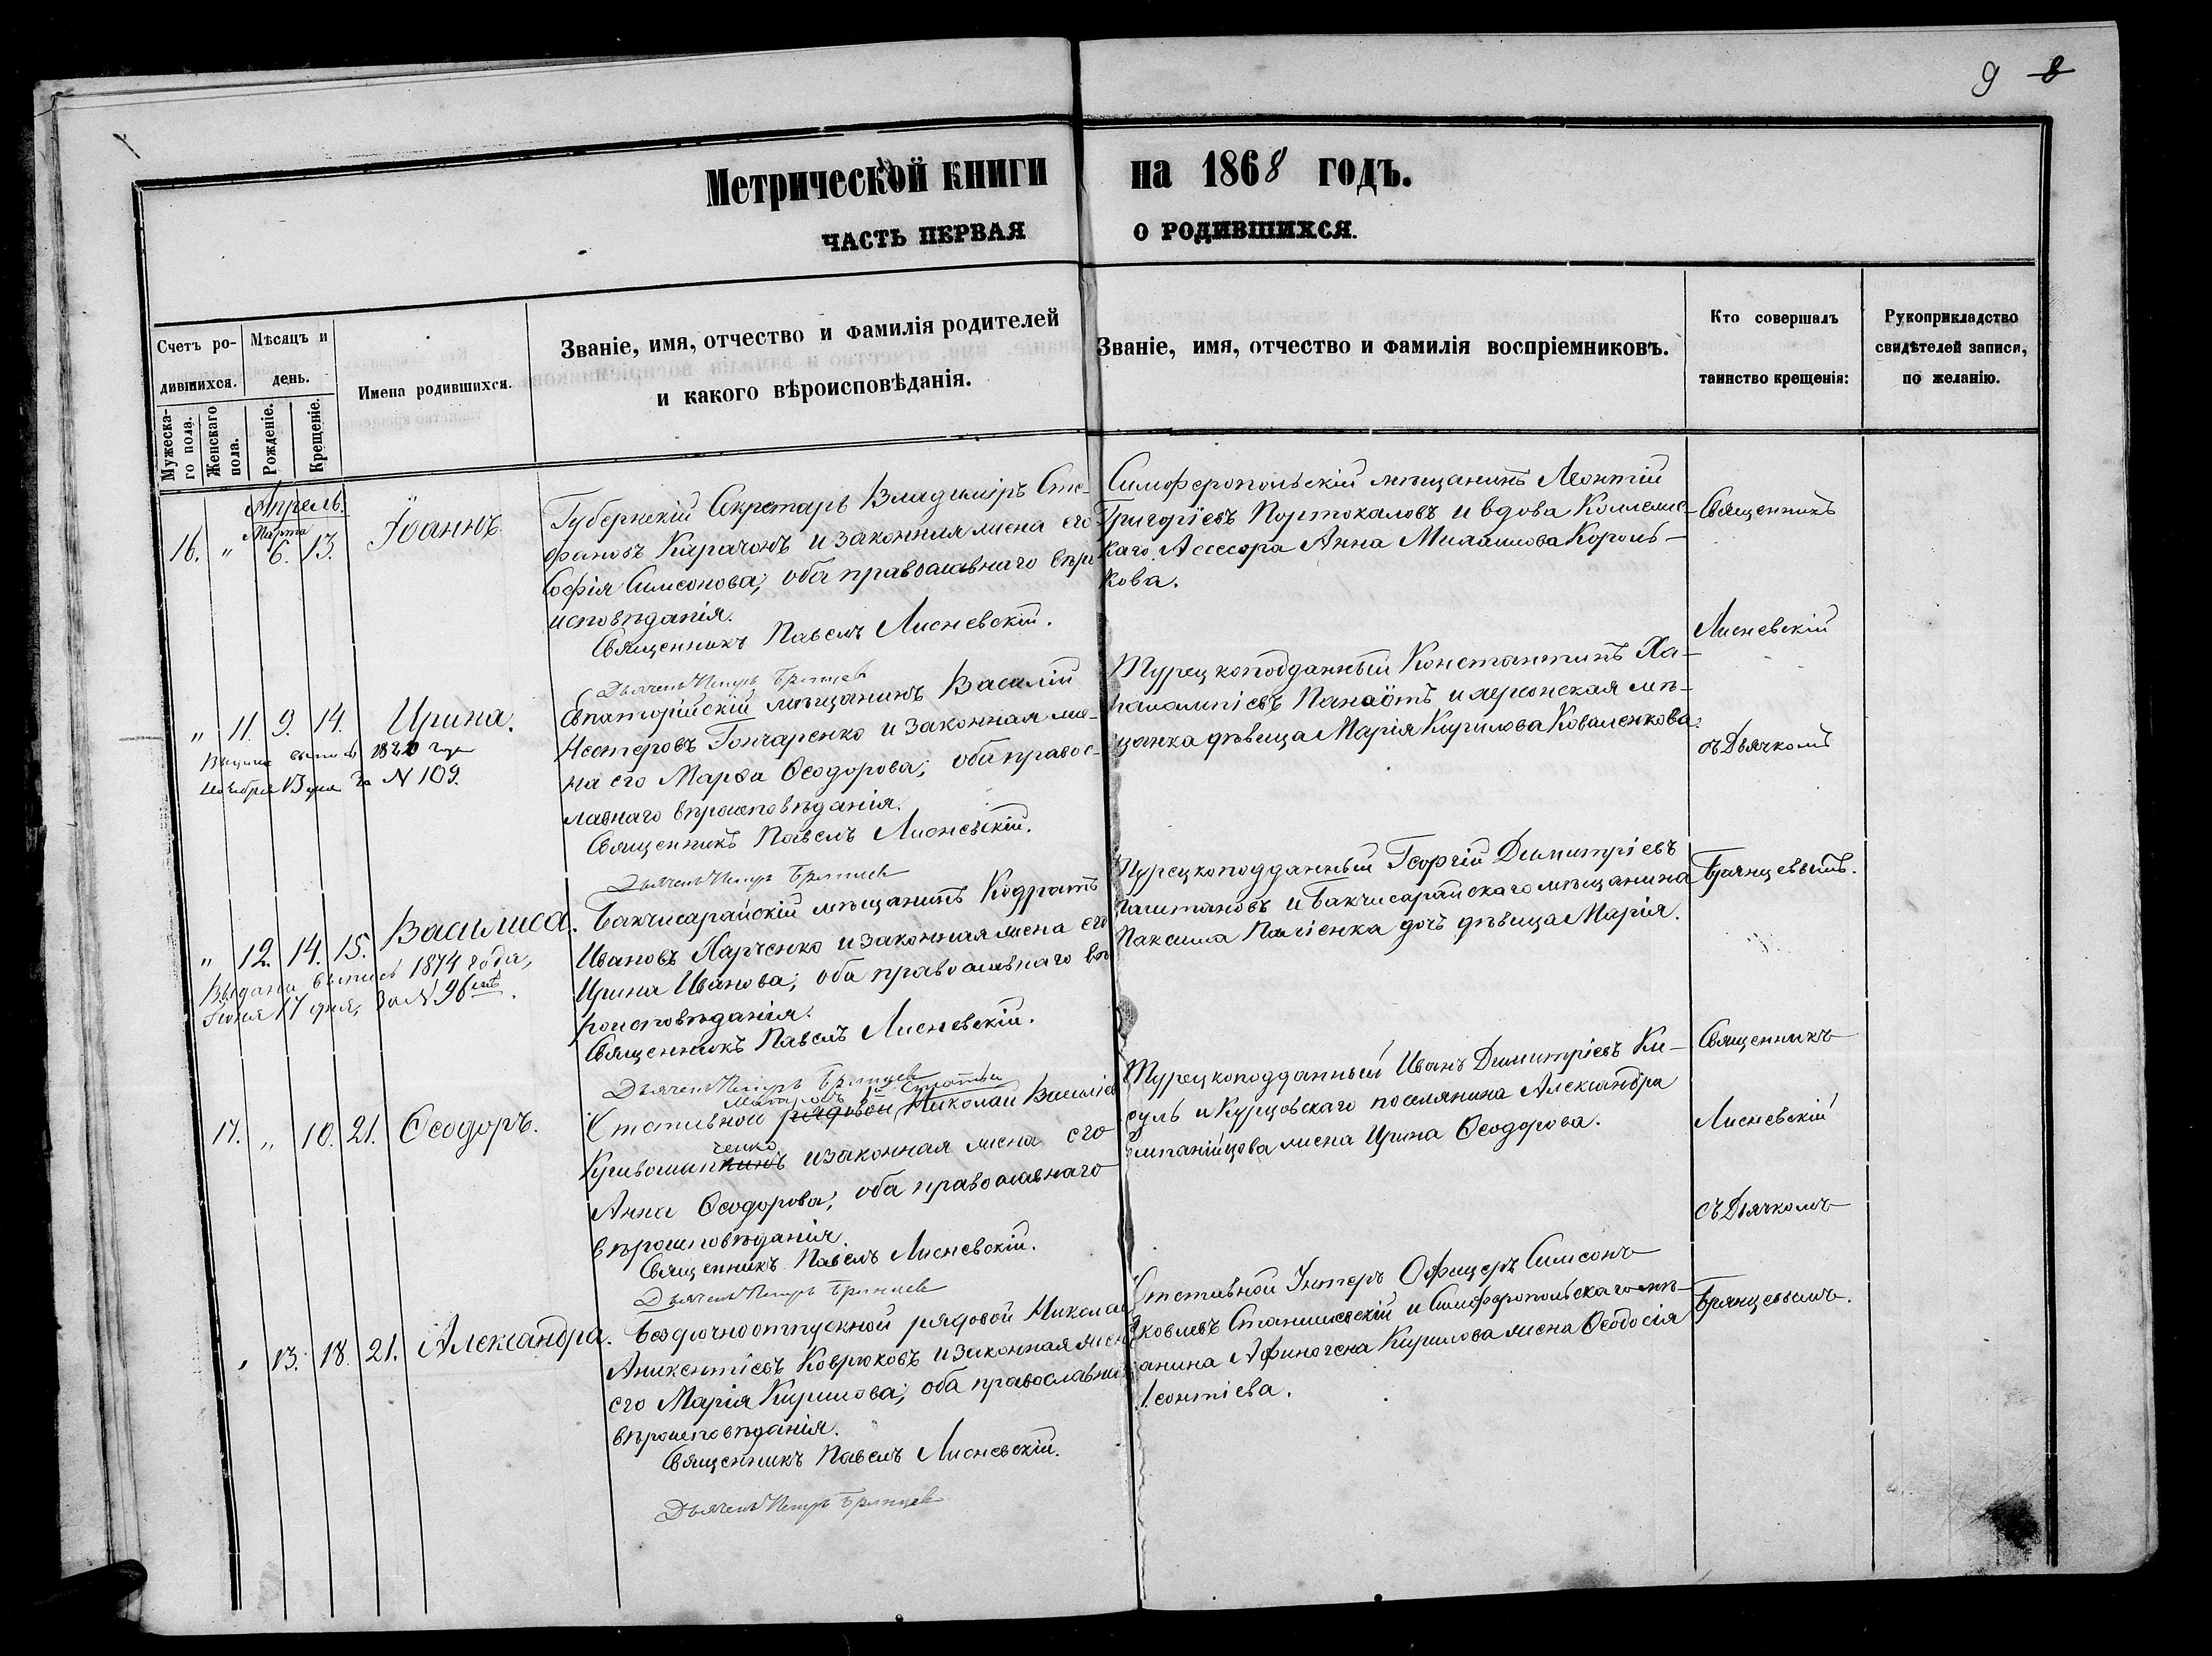 9 8
Метрической книги на 1868 годъ.
ЧАСТЬ ПЕРВАЯ О РОДИВШИХСЯ.
Счетъ ро-
дившихся.
Мужеска-
го пола.
Женскаго
пола.
Мѣсяцъ и
день.
Рожденіе.
Крещеніе.
Имена родившихся.
Званіе, имя, отчество и фамилія родителей
и какого вѣроисповѣданія.
Званіе, имя, отчество и фамилія воспріемниковъ.
Кто совершалъ
таинство крещенія:
Рукоприкладство
свидѣтелей записи,
по желанію.
Апрель.
Марта
16. " 6. 13. Іоаннъ.
Губернскій Секретарь Владиміръ Сте-
фановъ Карачонъ и законная жена его
Софія Симеонова; оба православнаго вѣро
исповѣданія.
Священникъ Павелъ Лисневскій.
Дьячекъ Петръ Брянцев
Симферопольскій мѣщанинъ Леонтій
Григоріевъ Портокаловъ и вдова Коллежс-
каго Асессора Анна Михайлова Король-
кова.
Священникъ
Лисневскій
съ Дьячкомъ
Брянцевымъ.
" 11. 9. 14. Ирина.
дня за N 109.
Евпаторійскій мѣщанинъ Василій
Нестеровъ Гончаренко и законная же-
на его Марѳа Ѳеодорова; оба правос-
лавнаго вѣроисповѣданія.
Священникъ Павелъ Лисневскій.
Дьячекъ Петръ Брянцев
Турецкоподданный Константинъ Ха-
ралампіевъ Панаіотъ и херсонская мѣ-
щанка дѣвица Марія Кирилова Коваленкова.
" 12. 14. 15. Василиса.
Выдана выпись 1874 года,
Іюня 17 дня, за N 96мъ.
Бакчисарайскій мѣщанинъ Кодратъ
Ивановъ Харченко и законная жена его
Ирина Иванова; оба православнаго вѣ
роисповѣданія.
Священникъ Павелъ Лисневскій.
Дьячекъ Петръ Брянцев
Турецкоподданный Георгій Димитріевъ
Каштановъ и Бакчисарайскаго мѣщанина
дочь дѣвица Марія.
17. " 10. 21. Ѳеодоръ.
Отставной рядовой Николай Василіев
ченко
и законная жена его
Анна Ѳеодорова; оба православнаго
вѣроисповѣданія.
Священникъ Павелъ Лисневскій.
Дьячекъ Петръ Брянцев
Турецкоподданный Иванъ Димитріевъ Ки-
суль и Курцовскаго поселянина Александра
жена Ирина Ѳеодорова.
Священникъ
Лисневскій
съ Дьячкомъ
Брянцевымъ.
" 13. 18. 21. Александра.
Безсрочноотпускной рядовой Николай
Аникентіевъ Коврюковъ и законная жена
его Марія Кирилова; оба православнаго
вѣроисповѣданія.
Священникъ Павелъ Лисневскій.
Дьячекъ Петръ Брянцев
Отставной Унтеръ Офицеръ Симеонъ
Яковлевъ Станишевскій и Симферопольскаго мѣ-
щанина Афиногена Кирилова жена Ѳеодосія
Леонтіева.